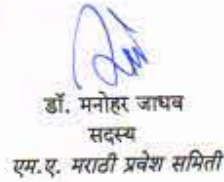 डॉ. मनोहर जाधव
सदस्य
एम.ए. मराठी प्रवेश समिती